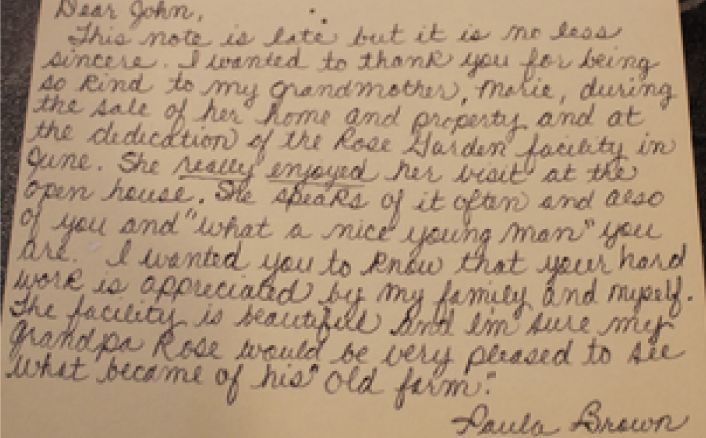 Dear John,
This note is late but it is no less
sincere. I wanted to thank you for being
so kind to my grandmother, Marie, during
the sale of her home and property and at
the dedication of the Rose Garden facility in
June. She really enjoyed her visit at the
open house. She speaks of it often and also
of you and "what a nice young man" you
are. I wanted you to know that your hard
work is appreciated by my family and myself.
The facility is beautiful and I'm sure my
grandpa Rose would be very pleased to see
what became of his "old farm."
Paula Brown